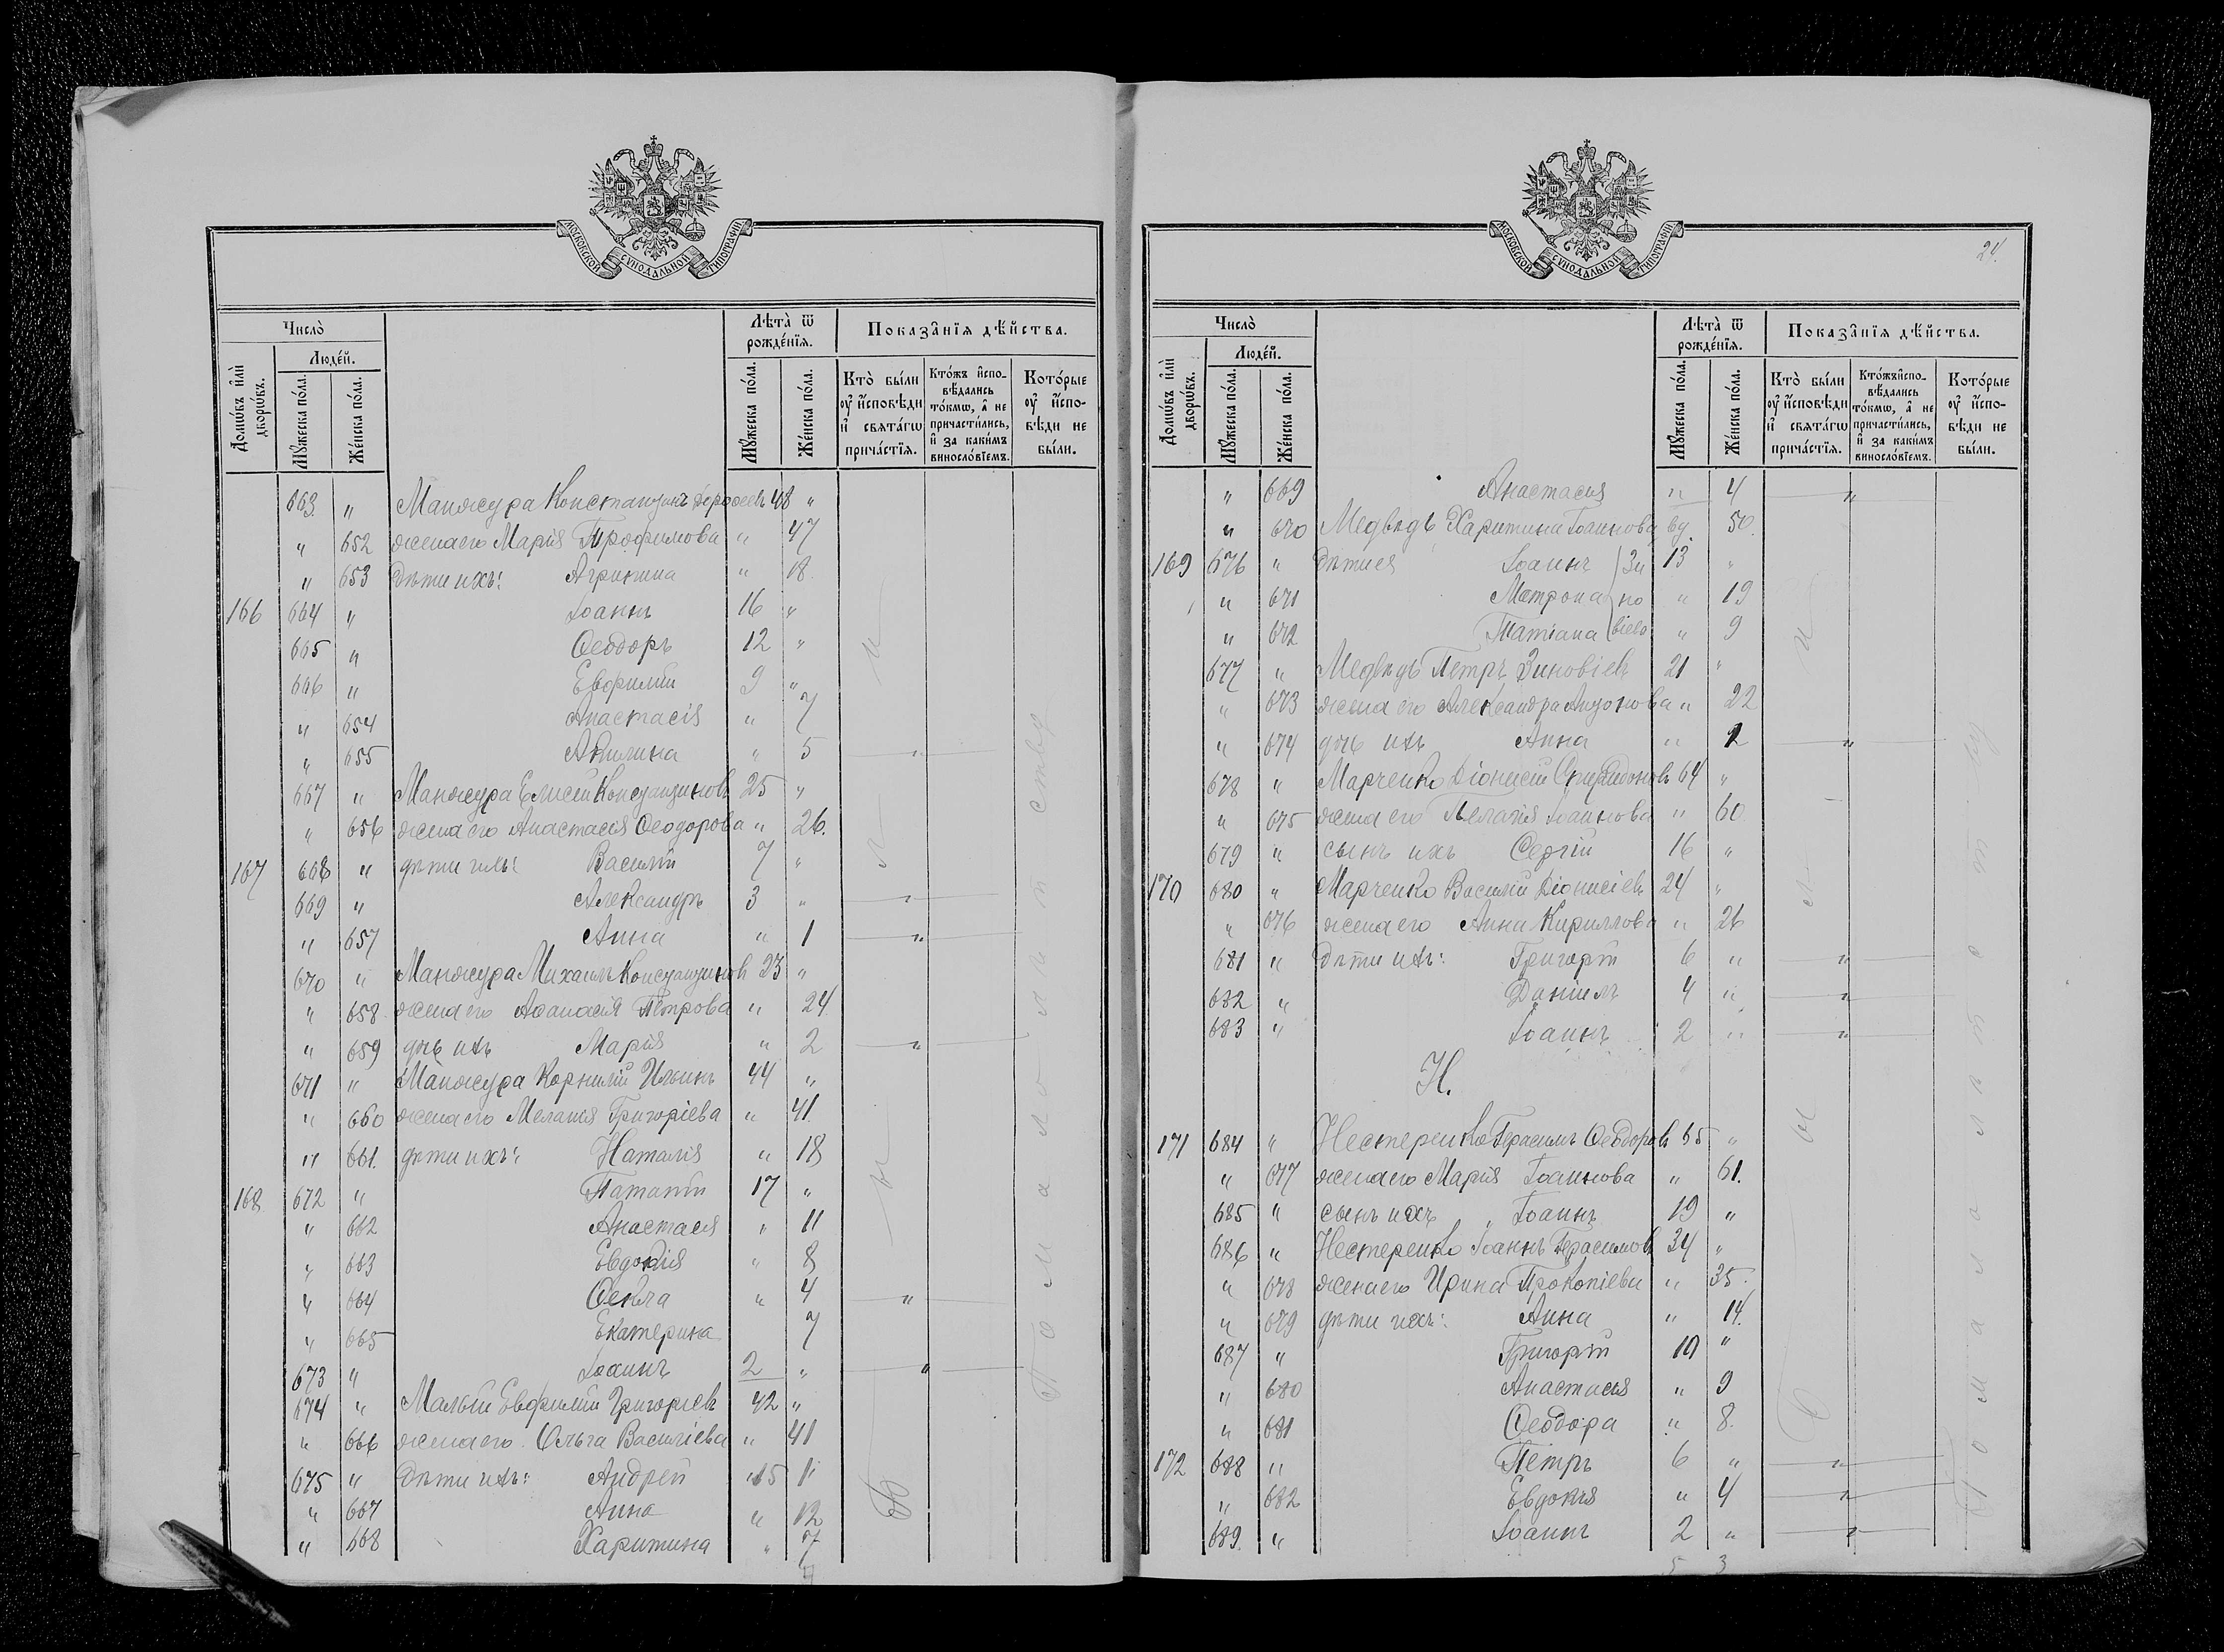 МОСКОВСКОЙ СѴНОДАЛЬНОЙ ТИПОГРАФІИ
Число̀
Люде́й.
Домѡ́въ и҆лѝ дворѡ́въ.
Мꙋ́жеска по́ла.
Же́нска по́ла.
Лѣта̀ ѿ рожде́нїѧ.
Мꙋ́жеска по́ла.
Же́нска по́ла.
Показа̂нїѧ дѣ́йства.
Кто̀ бы́ли оу҆ и҆́сповѣди и҆ свѧта́гѡ прича́стїѧ.
Кто́жъ и҆спо- вѣ́дались то́кмѡ, а҆ не причасти́лись, и҆ за каки́мъ винослѡ́вїемъ.
Кото́рые оу҆ и҆́спо- вѣди не бы́ли.
663. " Манжура Константинъ Дорофеевъ 48 "
" 652 жена его Марія Трофимова " 47
" 653 дѣти ихъ: Агрипина " 18.
166 664 " Іоаннъ 16 "
665 " Ѳеодоръ 12 "
666 " Евфимій 9 "
" 654 Анастасія " 7
" 655 Акилина " 5 "
667 " Манжура Елисей Константиновъ 25 "
" 656 жена его Анастасія Ѳеодорова " 26.
167 668 " дѣти ихъ: Василій 7 "
669 " Александръ 3 " "
" 657 Анна " 1 "
670 " Манжура Михаилъ Константиновъ 23 "
" 658. жена его Аѳанасія Петрова " 24
" 659 дчь ихъ Марія " 2 "
671 " Манжура Корнилій Ильинъ 44 "
" 660 жена его Меланія Григоріева " 41.
" 661. дѣти ихъ: Наталія " 18
168 672 " Патапій 17 "
" 662 Анастасія " 11
" 663 Евдокія " 8
" 664 Ѳекла " 4 "
" 665 Екатерина 7
673 " Іоаннъ 2 " "
674 " Малый Евфимій Григоріевъ 42 "
" 666 жена его Ольга Василіева " 41
675 " Дѣти ихъ: Андрей 15 "
" 667 Анна " 12
" 668 Харитина " 7
МОСКОВСКОЙ СѴНОДАЛЬНОЙ ТИПОГРАФІИ
24.
Число̀
Люде́й.
Домѡ́въ и҆лѝ дворѡ́въ.
Мꙋ́жеска по́ла.
Же́нска по́ла.
Лѣта̀ ѿ рожде́нїѧ.
Мꙋ́жеска по́ла.
Же́нска по́ла.
Показа̂нїѧ дѣ́йства.
Кто̀ бы́ли оу҆ и҆́сповѣди и҆ свѧта́гѡ прича́стїѧ.
Кто́жъ и҆спо- вѣ́дались то́кмѡ, а҆ не причасти́лись, и҆ за каки́мъ винослѡ́вїемъ.
Кото́рые оу҆ и҆́спо- вѣди не бы́ли.
" 669 Анастасія " 4 "
" 670 Медвѣдь Харитина Іоаннова вд. 50.
169 676 " Дѣти ея Іоаннъ Зи 13 "
" 671 Матрона но " 19
" 672 Татіана віевы " 9
677 " Медвѣдь Петръ Зиновіевъ 21 "
" 673 жена его Александра Антонова " 22
" 674 дчь ихъ Анна " 2 "
678 " Марченко Діонисій Спиридоновъ 64 "
" 675 жена его Пелагія Іоаннова " 60
679 " сынъ ихъ Сергій 16 "
170 680 " Марченко Василій Діонисіевъ 24 "
" 676 жена его Анна Кириллова " 26
681 " Дѣти ихъ: Григорій 6 " "
682 " Даніилъ 4 " "
683 " Іоаннъ 2 " "
Н.
171 684 " Нестеренко Герасимъ Ѳеодоровъ 65 "
" 677 жена его Марія Іоаннова " 61.
685 " сынъ ихъ Іоаннъ 19 "
686 " Нестеренко Іоаннъ Герасимовъ 34 "
" 678 жена его Ирина Прокопіева " 35.
" 679 дѣти ихъ: Анна " 14.
687 " Григорій 10 "
" 680 Анастасія " 9
" 681 Ѳеодора " 8.
172 688 " Петръ 6 " "
" 682 Евдокія " 4 "
689. " Іоаннъ 2 " "
5 3
Были
По малолѣтству
Были
По малолѣтству